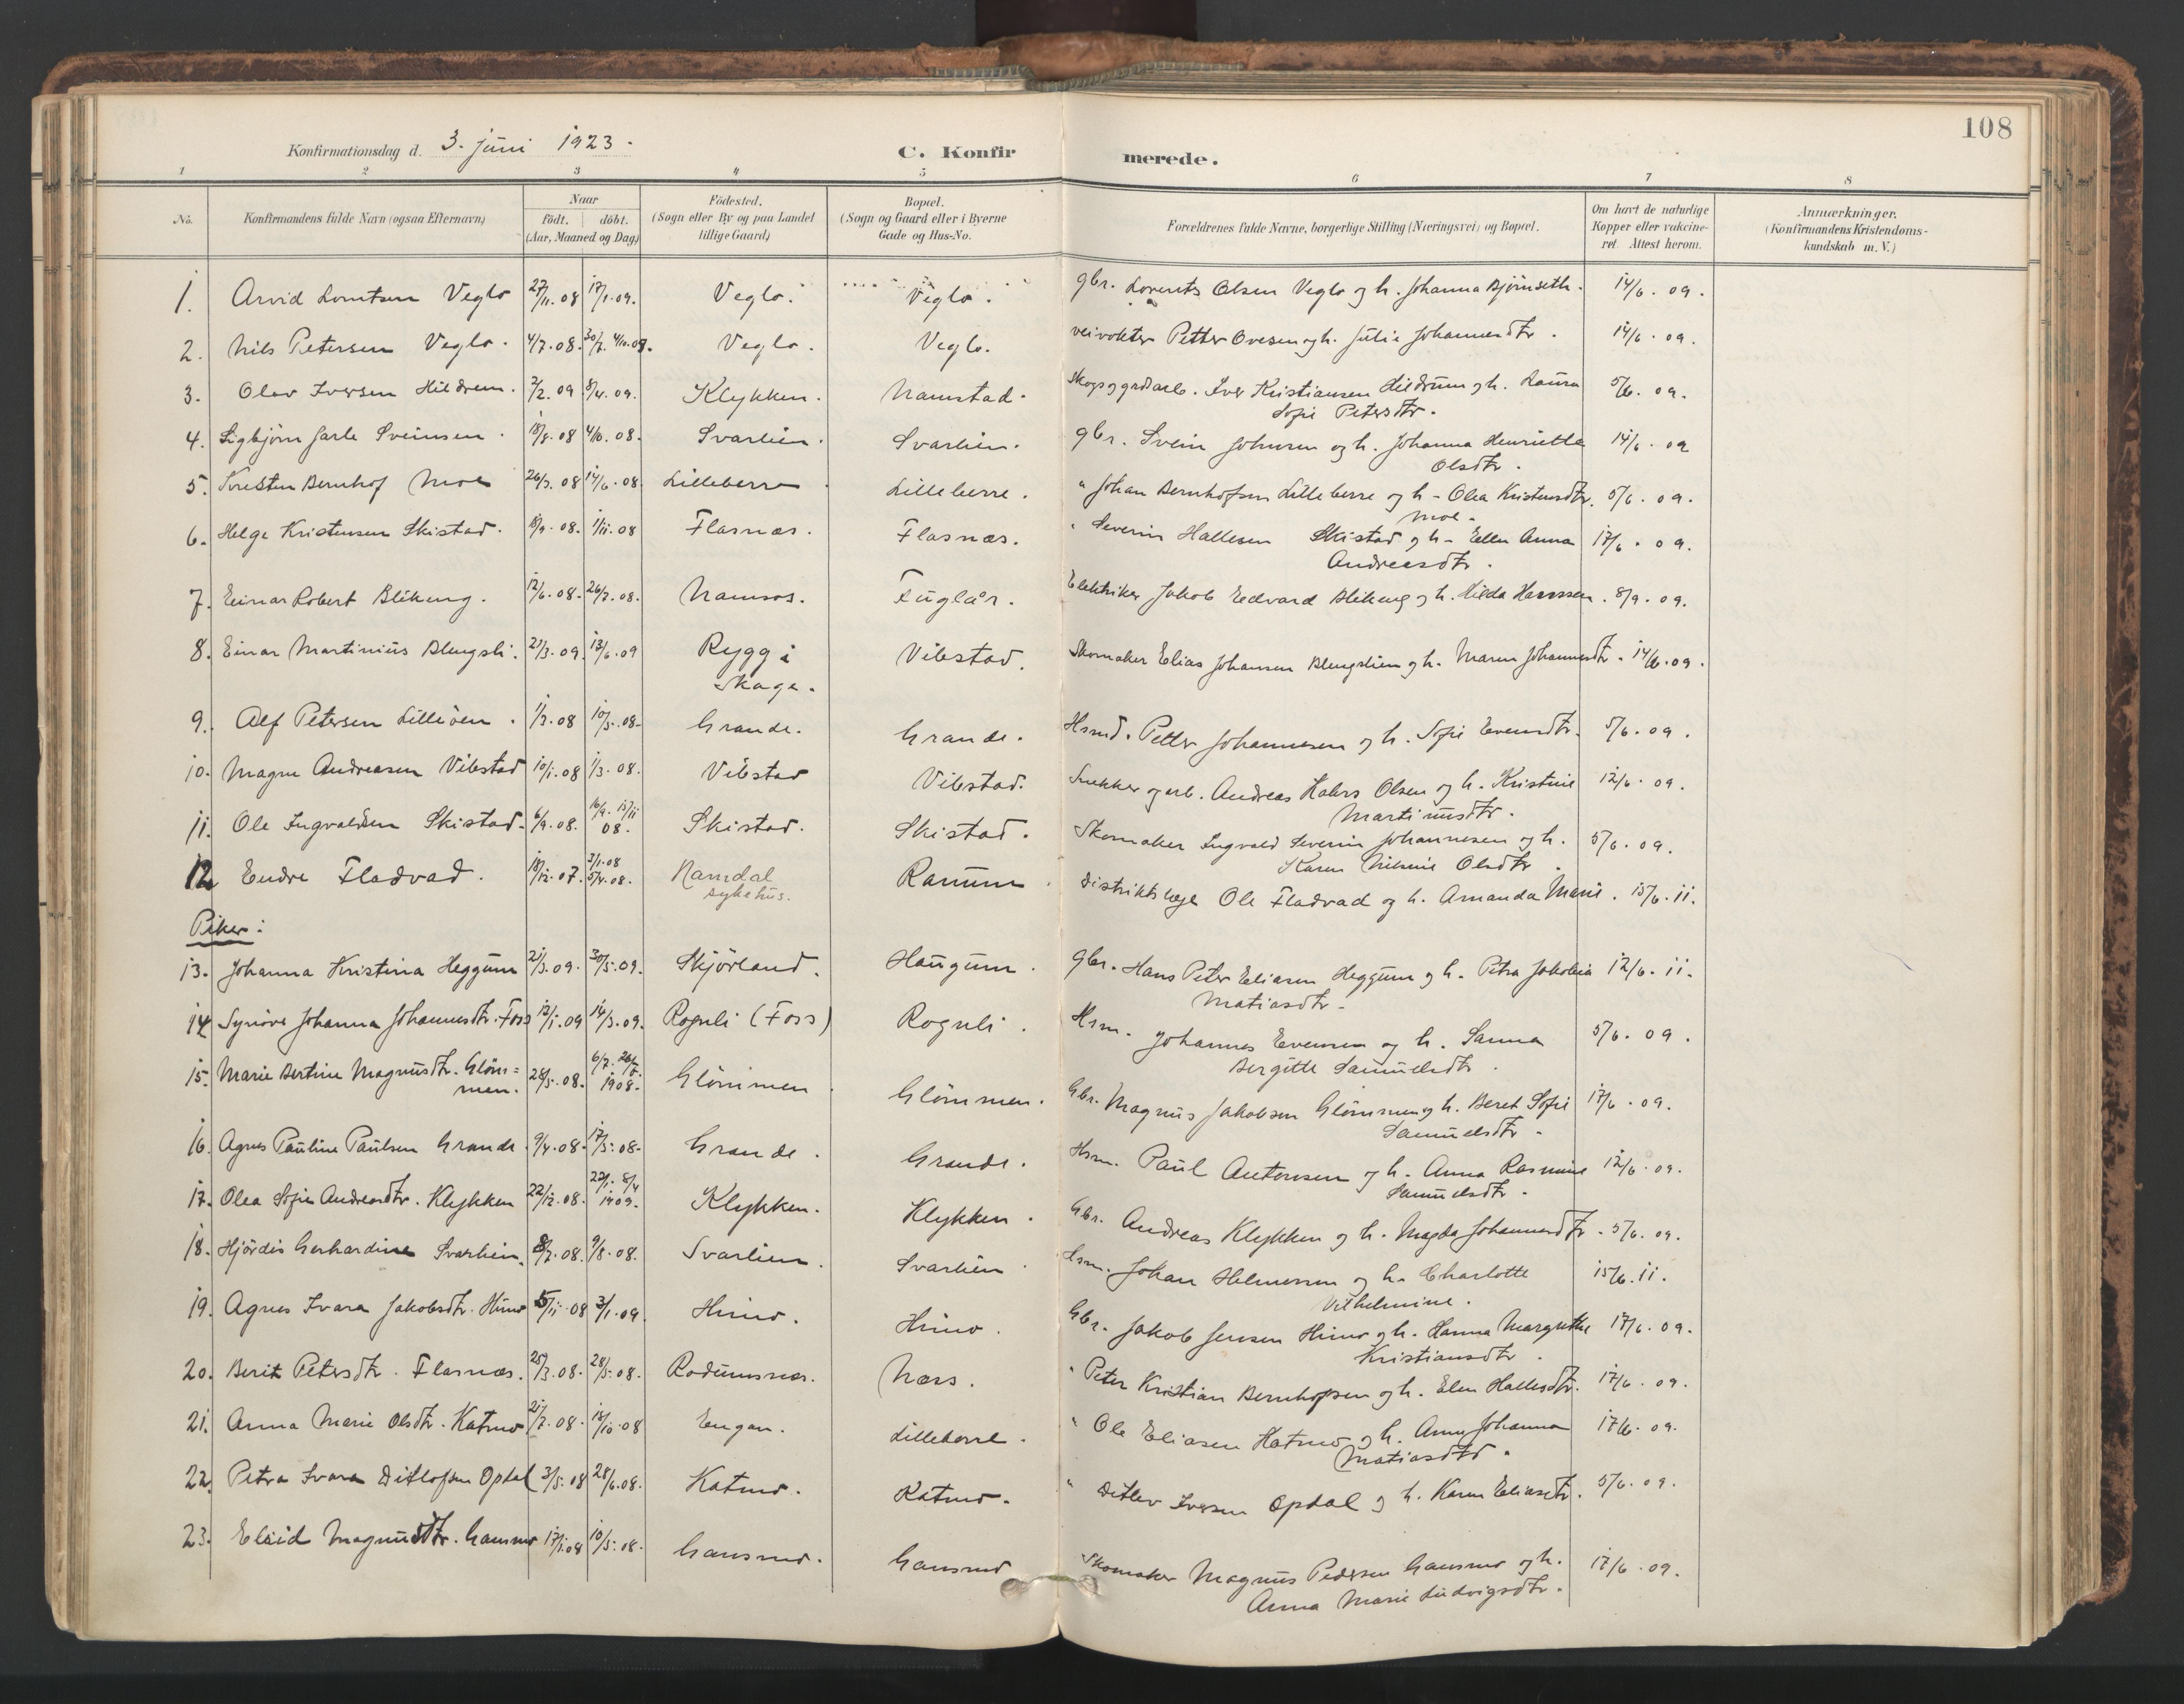 108
Konfirmationsdag d. 3. juni 1923.
C. Konfirmerede.
1 2 3 4 5 6 7 8
No.
Konfirmandens fulde Navn (ogsaa Efternavn)
Naar
födt. döbt.
(Aar, Maaned og Dag)
Födested.
(Sogn eller By og paa Landet
tillige Gaard)
Bopæl.
(Sogn og Gaard eller i Byerne
Gade og Hus-No.
Forældrenes fulde Navne, borgerlige Stilling (Næringsvei) og Bopæl.
Om havt de naturlige
Kopper eller vakcine-
ret. Attest herom.
Anmærkninger.
(Konfirmandens Kristendoms-
kundskab m. V.)
1. Arvid Lorntsen Veglo 27/11. 08 17/1. 09. Veglo. Veglo. gbr. Lorents Olsen Veglo og h. Johanna Bjørnseth. 14/6. 09.
2. Nils Petersen Veglo. 4/7. 08. 30/7. 4/10. 08. Veglo. Veglo. veivokter Petter Ovesen og h. Julie Johannesdtr. 14/6. 09.
3. Olav Iversen Hildrem. 7/2. 09 8/4. 09. Klykken. Namstad. Skogs og grdarb. Iver Kristiansen Hildrum og h. Laura 5/6. 09.
Sofie Petersdtr.
4. Sigbjørn Jarle Sveinsen. 18/8. 08 4/10. 08. Svarlien. Svarlien. gbr. Svein Johnsen og h. Johanna Henriette 14/6. 09
Olsdtr.
5. Kristen Bernhof Moe 26/3. 08 14/6. 08. Lilleberre Lilleberre. " Johan Bernhofsen Lilleberre og h. Olea Kristensdtr. 5/6. 09.
Moe.
6. Helge Kristensen Skistad. 18/9. 08. 1/11. 08 Flasnæs. Flasnæs. " Severin Hallesen Skistad og h. Ellen Anna 17/6. 09.
Andreasdtr.
7. Einar Robert Blikeng. 12/6. 08. 26/7. 08. Namsos. Fuglår. Elektriker Jakob Edvard Blikeng og h. Hilda Hanssen. 8/9. 09.
8. Einar Martinius Blengsli. 21/3. 09. 13/6. 09 Rygg i Vibstad. Skomaker Elias Johansen Blengslien og h. Maren Johannesdtr. 14/6. 09.
Skage.
9. Alf Petersen Lilleöen. 1/3. 08 10/5. 08. Grande. Grande. Hsmd. Petter Johannesen og h. Sofie Evensdtr. 5/6. 09.
10. Magne Andreasen Vibstad 10/1. 08 1/3. 08. Vibstad Vibstad. Snekker og arb. Andreas Olsen og h. Kristine 12/6. 09.
Martinusdtr.
11. Ole Ingvaldsen Skistad. 6/9. 08. 16/9. 15/11 08. Skistad. Skistad. Skomaker Ingvald Severin Johannesen og h. 5/6. 09.
Karen Olsdtr
12 Endre Fladvad. 18/12. 07. 3/1. 08 5/4. 08. Namdal Ranum Distriktslæge Ole Fladvad og h. Amanda Marie. 15/6. 11.
sykehus.
Piker:
13. Johanna Kristina Heggum 21/3. 09. 30/5. 09. Skjörland. Haugum. gbr. Hans Peter Eliasen Heggum og h. Petra Jakobia 12/6. 11.
Matiasdtr.
14 Synöve Johanna Johannesdtr. Foss 12/1. 09 14/3. 09. Rognli (Foss) Rognli. Hsm. Johannes Evensen og h. Sanna 5/6. 09.
Bergitte Samuelsdtr.
15. Marie Bertine Magnusdtr. Glöm= 28/5. 08. 6/7. 26/7. 1908. Glömmen Glömmen. Gbr. Magnus Jakobsen Glömmen og h. Beret Sofie 17/6. 09.
men. Samuelsdtr.
16. Agnes Pauline Paulsen Grande. 9/4. 08. 17/5. 08. Grande. Grande. Hsm. Paul Antonsen og h. Anna Rasmine 12/6. 09.
Samuelsdtr.
17. Olea Sofie Andreasdtr. Klykken 22/12. 08. 22/1. 8/4 1909. Klykken. Klykken. Gbr. Andreas Klykken og h. Magda Johannesdtr. 5/6. 09.
18. Hjördis Gerhardine Svarlien. 8/7. 08. 9/8. 08. Svarlien. Svarlien. Hsm. Johan Helmersen og h. Charlotte 15/6. 11.
Vilhelmine.
19. Agnes Ivara Jakobsdtr. Himo 5/11. 08 3/1. 09. Himo. Himo. Gbr. Jakob Jensen Himo og h. Hanna Margrethe 17/6. 09.
Kristiansdtr.
20. Berit Petersdtr. Flasnæs. 25/3. 08. 28/5. 08. Rodumsnes. Næss. " Peter Kristian Bernhofsen og h. Elen Hallesdtr. 17/6. 09.
21. Anna Marie Olsdtr. Katmo 21/7. 08. 18/10. 08 Engan. Lilleberre. " Ole Eliasen Katmo og h. Anne Johanna 17/6. 09.
Matiasdtr.
22. Petra Ivara Ditlofsen Opdal 3/5. 08 28/6. 08. Katmo. Katmo. " Ditlev Iversen Opdal og h. Karen Eliasdtr. 5/6. 09.
23. Eliid Magnusdtr. Gansmo 17/1. 08 10/5. 08. Gansmo. Gansmo Skomaker Magnus Pedersen Gansmo og h. 17/6. 09.
Anna Marie Ludvigsdtr.